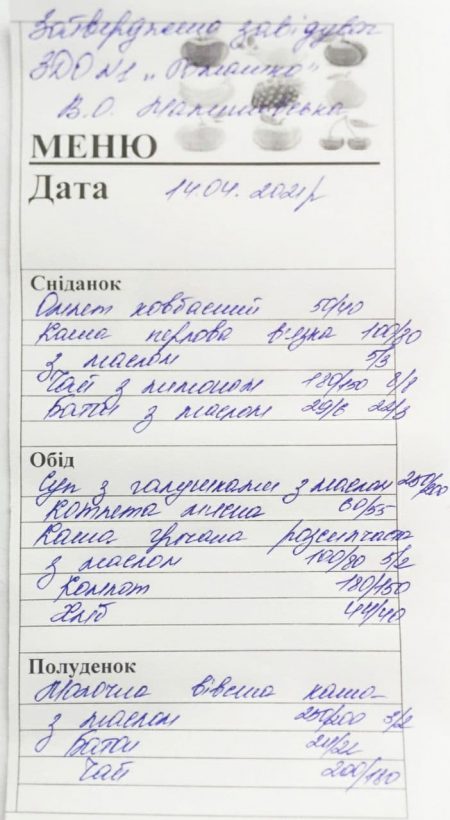 Затверджено завідувач
ЗДО №1 „Ромашка"
В.О.
МЕНЮ
Дата 14.04. 2021р
Сніданок
Омлет ковбасний 50/40
Каша перлова в'язка 100/80
з маслом 5/3
Чай з лимоном 180/150 8/8
Батон з маслом 29/6 22/3
Обід
Суп з галушками з маслом 250/200
Котлета мясна 60/55
Каша гречана розсипчаста
з маслом 100/80 5/2
Компот 180/150
Хліб 44/40
Полуденок
Молочна вівсяна каша
з маслом 250/200 3/2
Батон
Чай 200/180